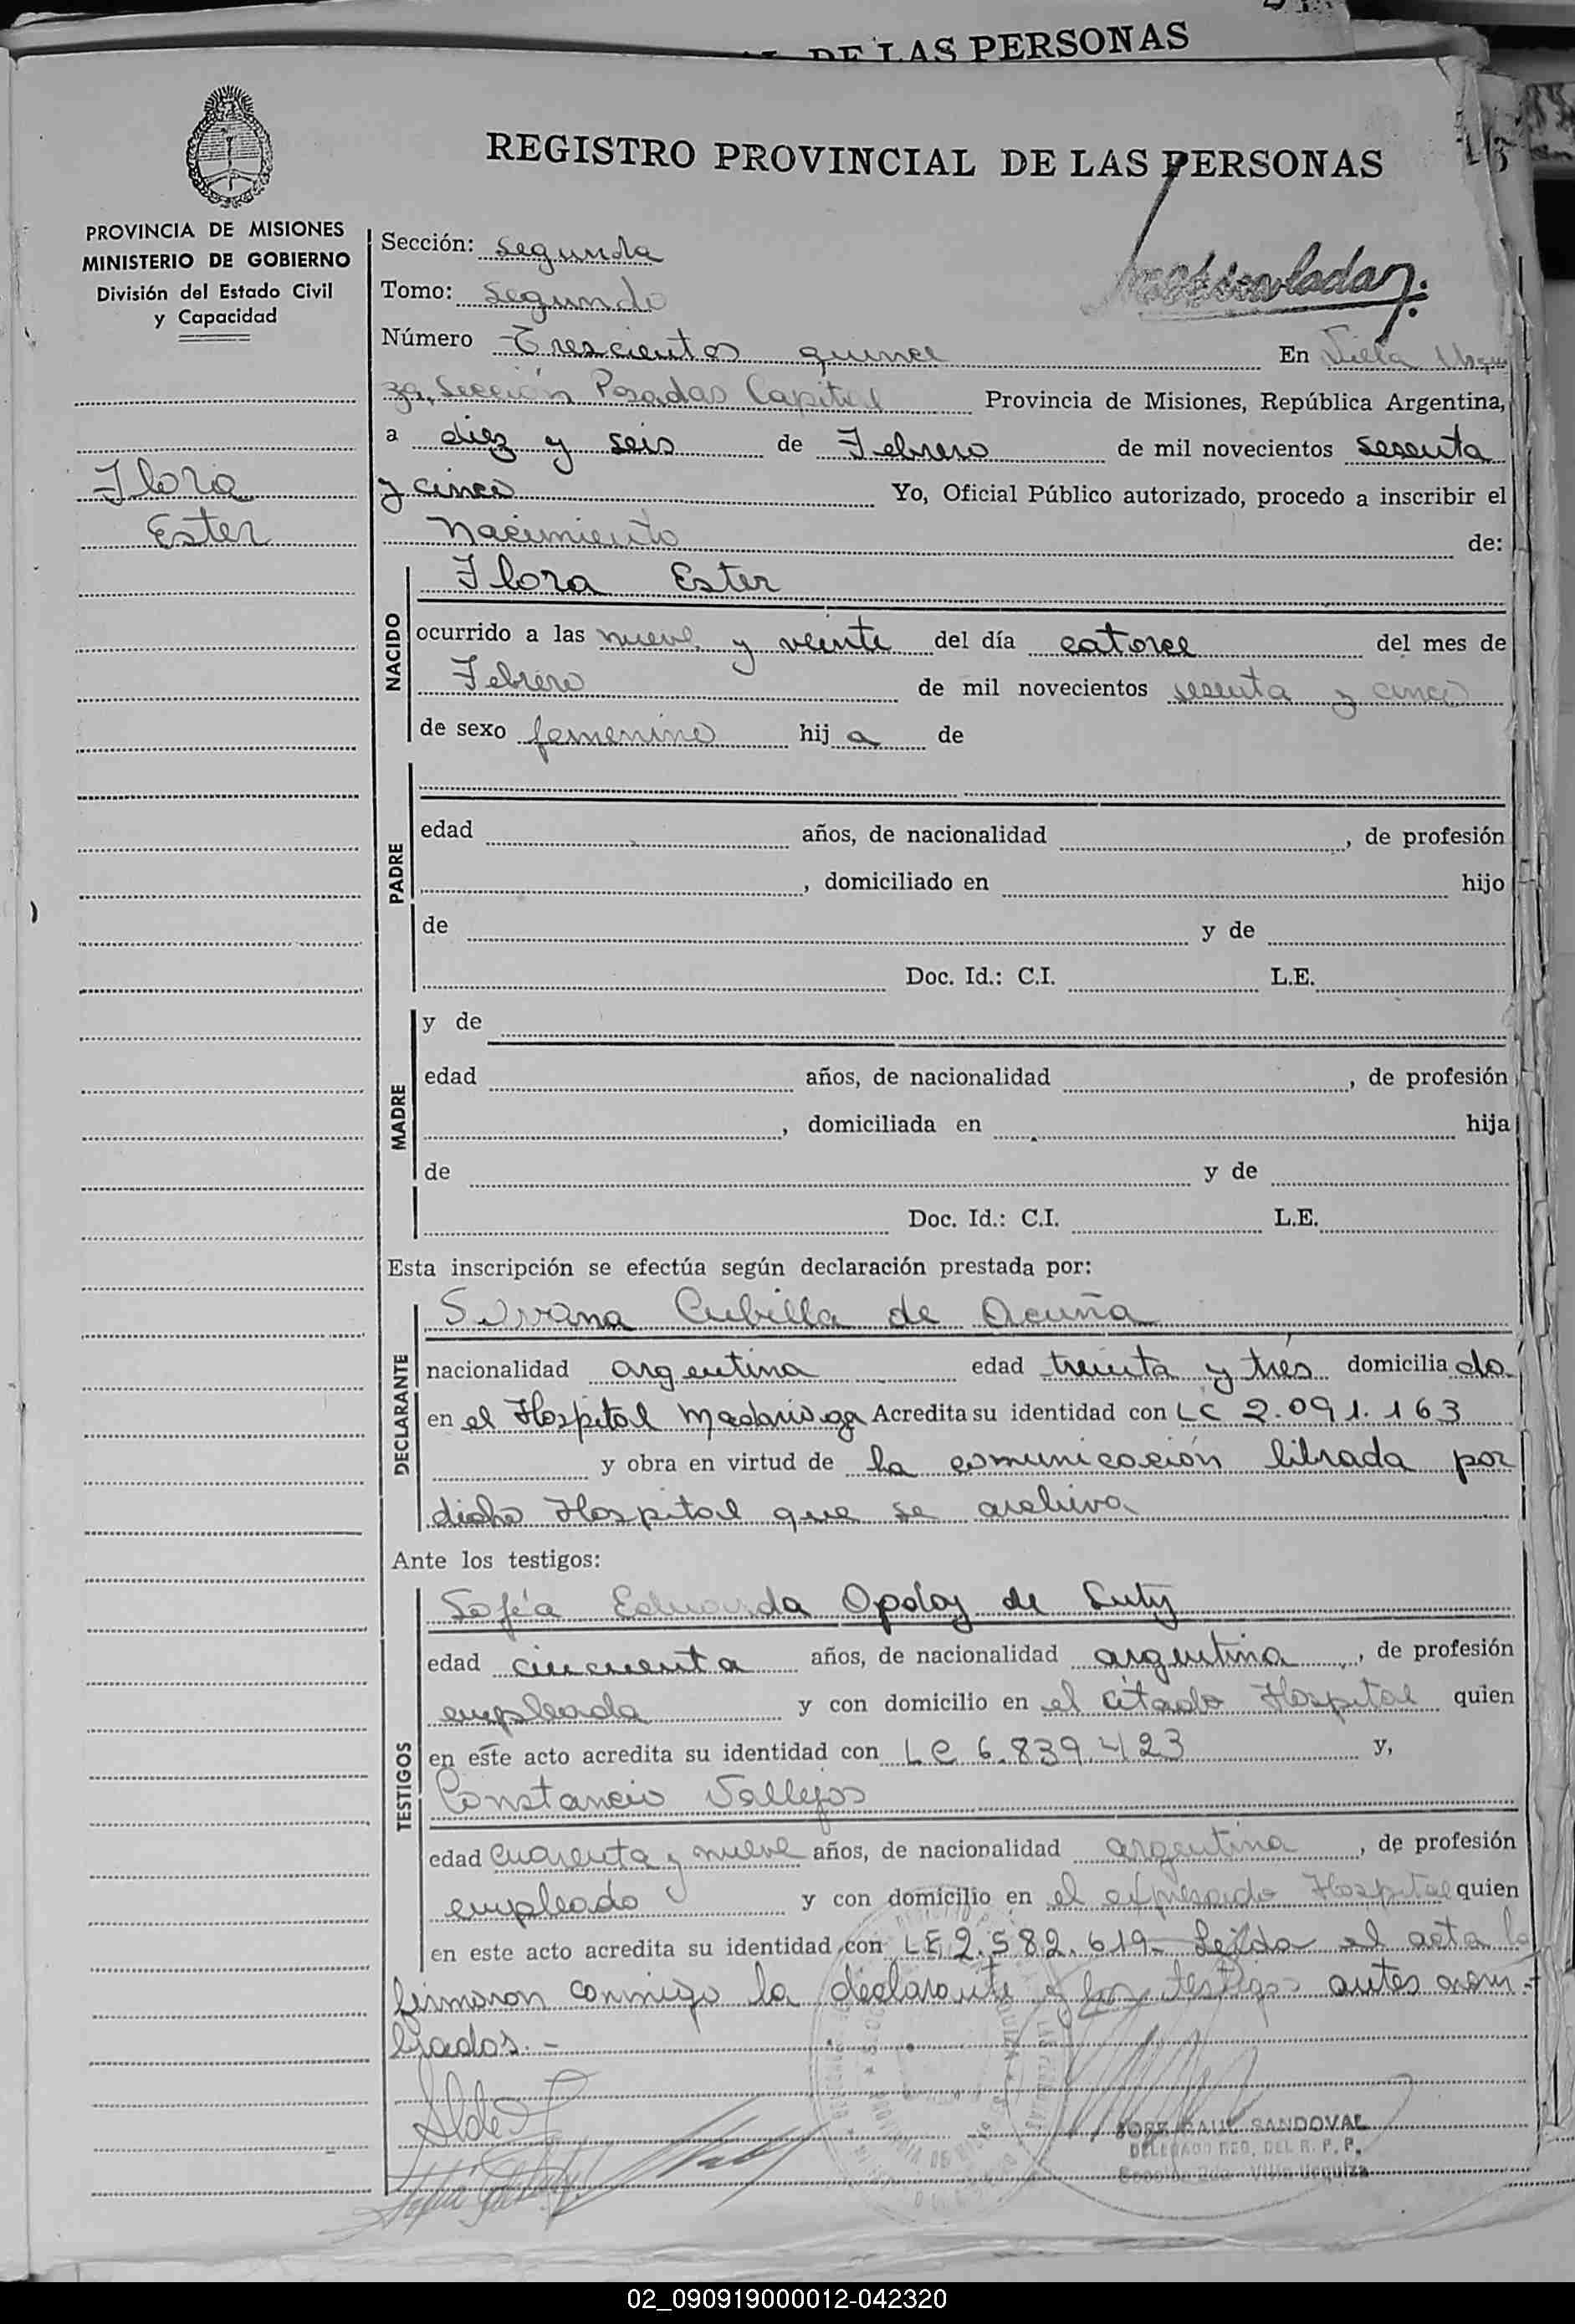 DE LAS PERSONAS
REGISTRO PROVINCIAL DE LAS PERSONAS
PROVINCIA DE MISIONES
MINISTERIO DE GOBIERNO
División del Estado Civil
y Capacidad
Flora
Ester
Sección: Segunda
Tomo: Segundo
Número Trescientos quince En Villa Urqui
za, Sección Posadas Capital Provincia de Misiones, República Argentina,
a diez y seis de Febrero de mil novecientos sesenta
y cinco Yo, Oficial Público autorizado, procedo a inscribir el
Nacimiento de:
NACIDO
Flora Ester
ocurrido a las nueve y veinte del día catorce del mes de
Febrero de mil novecientos sesenta y cinco
de sexo femenino hij a de
PADRE
edad años, de nacionalidad , de profesión
, domiciliado en hijo
de y de
Doc. Id.: C.I. L.E.
MADRE
y de
edad años, de nacionalidad , de profesión
, domiciliada en hija
de y de
Doc. Id.: C.I. L.E.
Esta inscripción se efectúa según declaración prestada por:
DECLARANTE
Silvana Cubilla de Acuña
nacionalidad argentina edad treinta y tres domicilia da
en el Hospital Madariaga Acredita su identidad con LC 2.091.163
y obra en virtud de la comunicación librada por
dicho Hospital que se archiva
Ante los testigos:
TESTIGOS
Sofía Eduarda Opoloy de Luty
edad cincuenta años, de nacionalidad argentina , de profesión
empleada y con domicilio en el citado Hospital quien
en este acto acredita su identidad con LC 6.839.423 y,
Constancio Vallejos
edad cuarenta y nueve años, de nacionalidad argentina , de profesión
empleado y con domicilio en el expresado Hospital quien
en este acto acredita su identidad con LE 2.582.619- Leída el acta la
firmaron conmigo la declarante y los testigos antes nom-
brados.-
JOSE RAUL SANDOVAL
DELEGADO REG. DEL R. P. P.
Sección 2da - Villa Urquiza
02_090919000012-042320